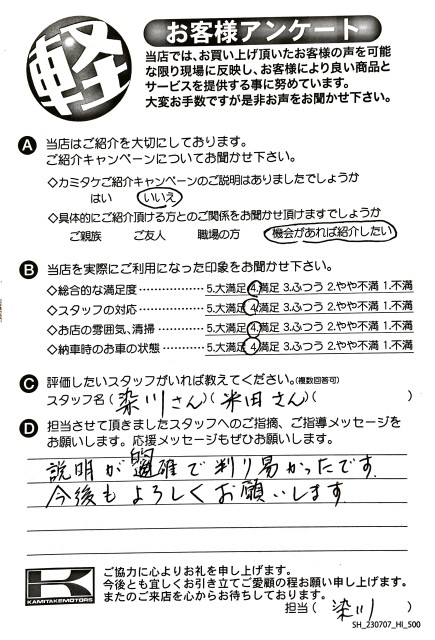 軽
お客様アンケート
当店では、お買い上げ頂いたお客様の声を可能
な限り現場に反映し、お客様により良い商品と
サービスを提供する事に努めています。
大変お手数ですが是非お声をお聞かせ下さい。
A 当店はご紹介を大切にしております。
ご紹介キャンペーンについてお聞かせ下さい。
◇カミタケご紹介キャンペーンのご説明はありましたでしょうか
はい いいえ
◇具体的にご紹介頂ける方とのご関係をお聞かせ頂けますでしょうか
ご親族 ご友人 職場の方 機会があれば紹介したい
B 当店を実際にご利用になった印象をお聞かせ下さい。
◇総合的な満足度 ・・・・・・・・・・・・ 5.大満足 4.満足 3.ふつう 2.やや不満 1.不満
◇スタッフの対応 ・・・・・・・・・・・・ 5.大満足 4.満足 3.ふつう 2.やや不満 1.不満
◇お店の雰囲気、清掃 ・・・・・・・・ 5.大満足 4.満足 3.ふつう 2.やや不満 1.不満
◇納車時のお車の状態 ・・・・・・・・ 5.大満足 4.満足 3.ふつう 2.やや不満 1.不満
C 評価したいスタッフがいれば教えてください。(複数回答可)
スタッフ名(染川さん)(米田さん)( )
D 担当させて頂きましたスタッフへのご指摘、ご指導メッセージを
お願いします。応援メッセージもぜひお願いします。
説明が的確で判り易かったです。
今後もよろしくお願いします
K
KAMITAKEMOTORS
ご協力に心よりお礼を申し上げます。
今後とも宜しくお引き立てご愛顧の程お願い申し上げます。
またのご来店を心からお待ちしております。
担当( 染川 )
SH_230707_HI_500